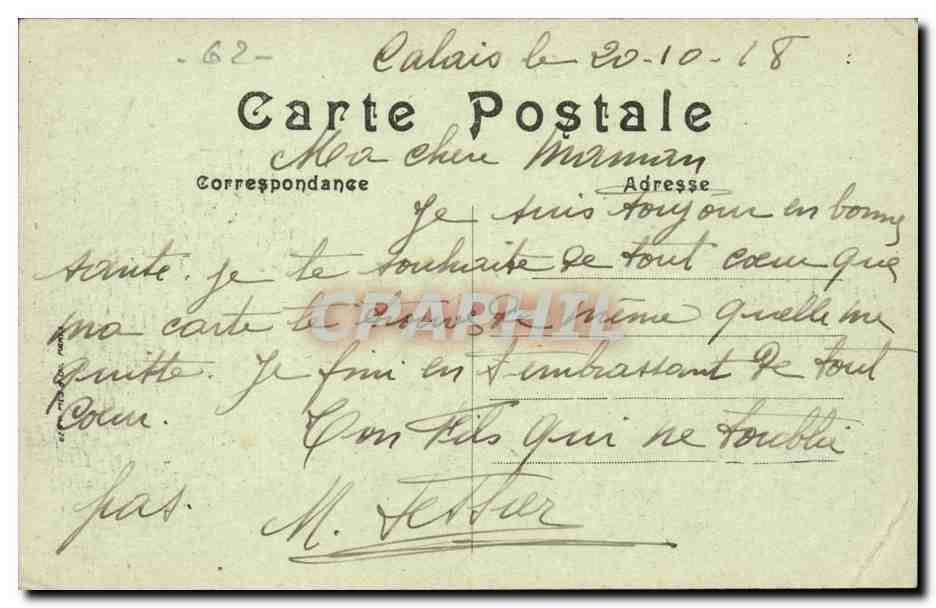 -62-
Calais le 20-10-18
Carte Postale
Ma chere Maman
Correspondance
Adresse
Je suis toujour en bonne
sante. je te souhaite de tout cœur que
ma carte te trouve de même quelle me
quitte. Je fini en t'embrassant de tout
Cœur. Ton Fils qui ne toublie
pas.
M. Tessier
CPAPHIL